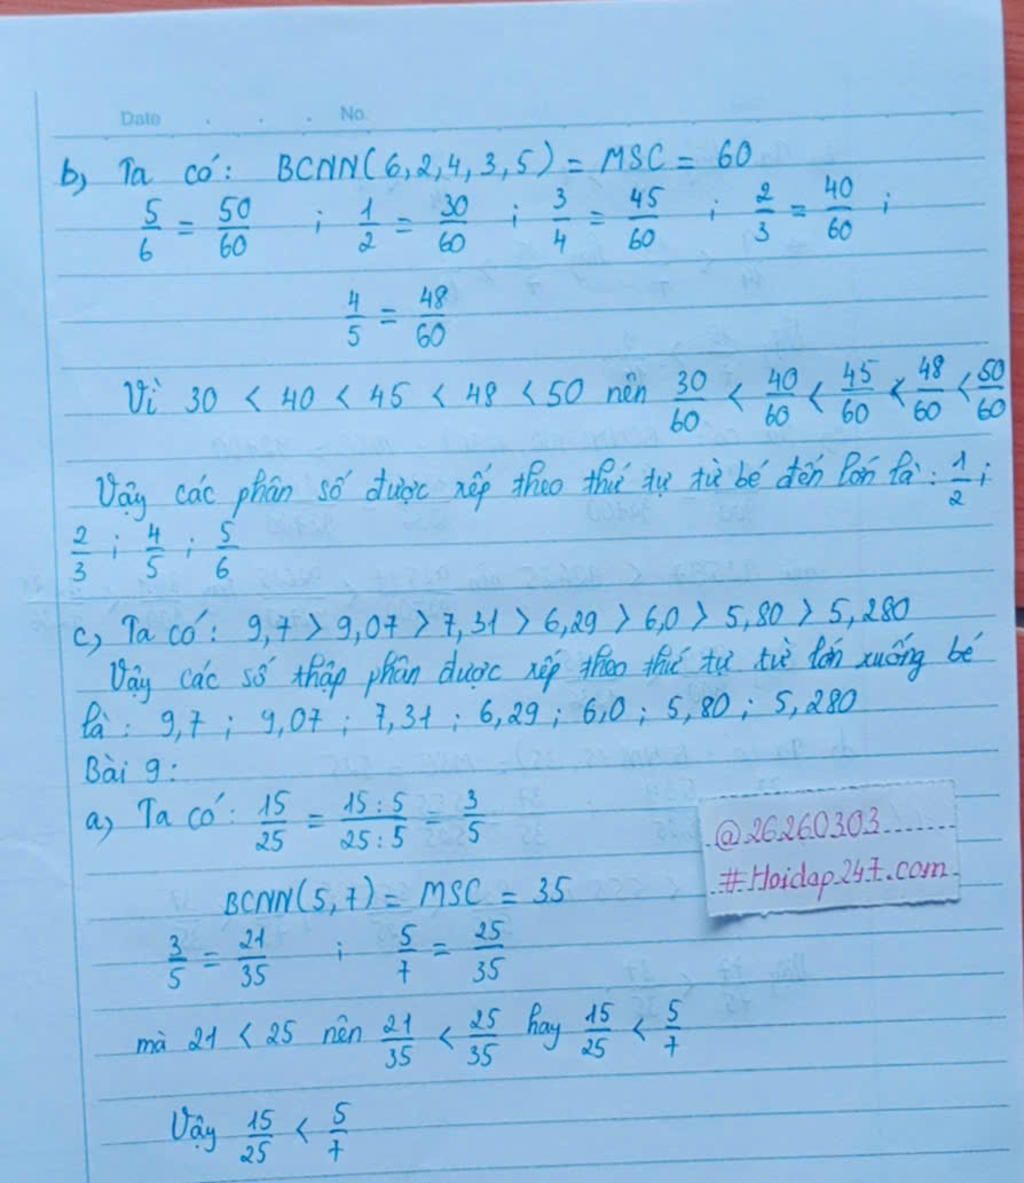 Date . . . No.
b) Ta có: BCNN(6,2,4,3,5) = MSC = 60
5/6 = 50/60 ; 1/2 = 30/60 ; 3/4 = 45/60 ; 2/3 = 40/60 ;
4/5 = 48/60
Vì 30 < 40 < 45 < 48 < 50 nên 30/60 < 40/60 < 45/60 < 48/60 < 50/60
Vậy các phân số được xếp theo thứ tự từ bé đến lớn là: 1/2 ;
2/3 ; 4/5 ; 5/6
c) Ta có: 9,7 > 9,07 > 7,31 > 6,29 > 6,0 > 5,80 > 5,280
Vậy các số thập phân được xếp theo thứ tự từ lớn xuống bé
là: 9,7 ; 9,07 ; 7,31 ; 6,29 ; 6,0 ; 5,80 ; 5,280
Bài 9:
a) Ta có: 15/25 = 15:5/25:5 = 3/5
@26260303
#Hoidap247.com
BCNN(5,7) = MSC = 35
3/5 = 21/35 ; 5/7 = 25/35
mà 21 < 25 nên 21/35 < 25/35 hay 15/25 < 5/7
Vậy 15/25 < 5/7